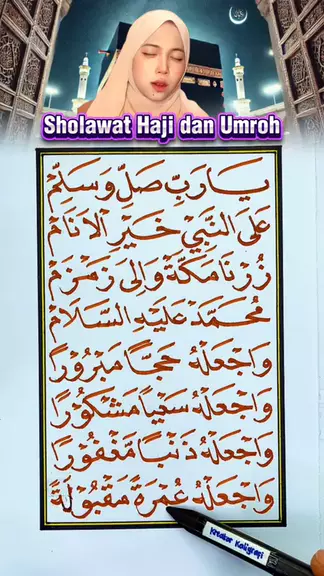 Sholawat Haji dan Umroh
يَارَبِّ صَلِّ وَسَلِّمْ
عَلَى النَّبِيِّ خَيْرِ الْاَنَامْ
زُرْنَا مَكَّةَ وَالِى زَمْزَمْ
مُحَمَّدْ عَلَيْهِ السَّلَامْ
وَاجْعَلْهُ حَجًّا مَبْرُوْرًا
وَاجْعَلْهُ سَعْيًا مَشْكُوْرًا
وَاجْعَلْهُ ذَنْبًا مَّغْفُوْرًا
وَاجْعَلْهُ عُمْرَةً مَقْبُوْلَةً
Kreator Kaligrafi